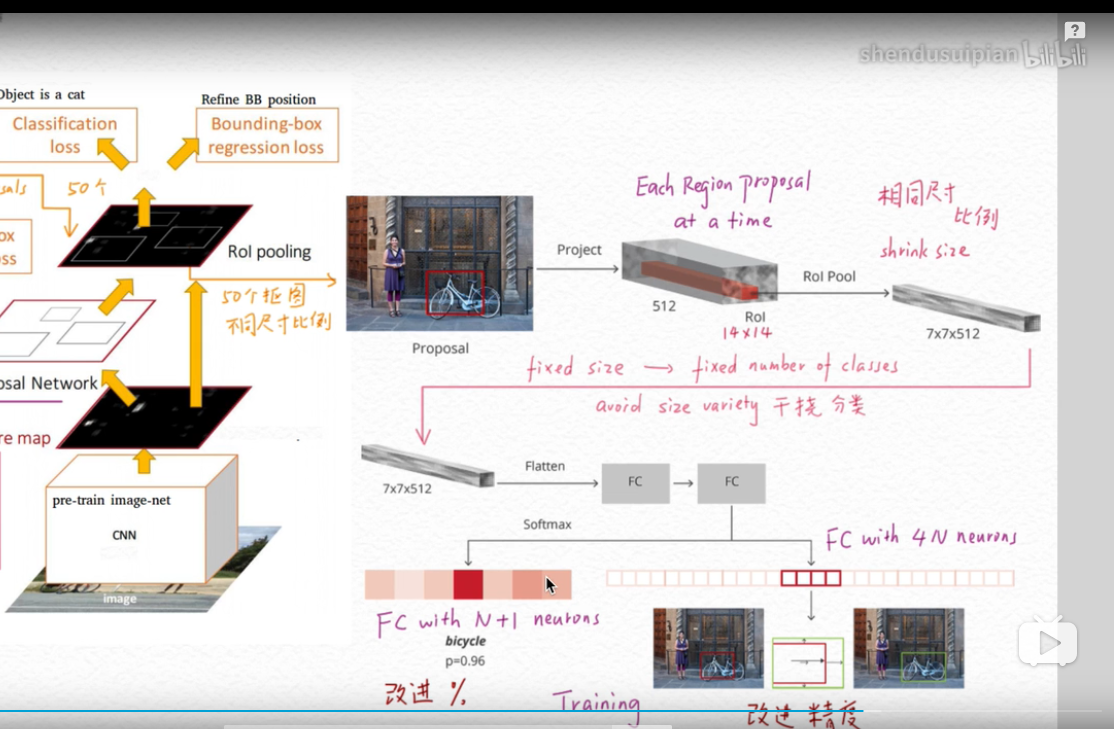 shendusuipian bilibili
Object is a cat
Classification
loss
Refine BB position
Bounding-box
regression loss
sals
50个
ox
ss
RoI pooling
50个框图
不同尺寸比例
osal Network
re map
pre-train image-net
CNN
image
Proposal
Project
Each Region proposal
at a time
512
RoI
14x14
相同尺寸
比例
shrink size
RoI Pool
7x7x512
fixed size → fixed number of classes
avoid size variety 干扰 分类
7x7x512
Flatten
FC
FC
Softmax
FC with N+1 neurons
bicycle
p=0.96
改进 %
FC with 4N neurons
Training
改进 精度